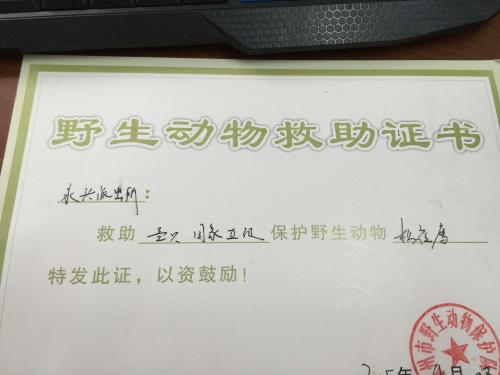 野生动物救助证书
永兴派出所：
救助 壹只 国家二级 保护野生动物
特发此证，以资鼓励！
州市野生动物保护